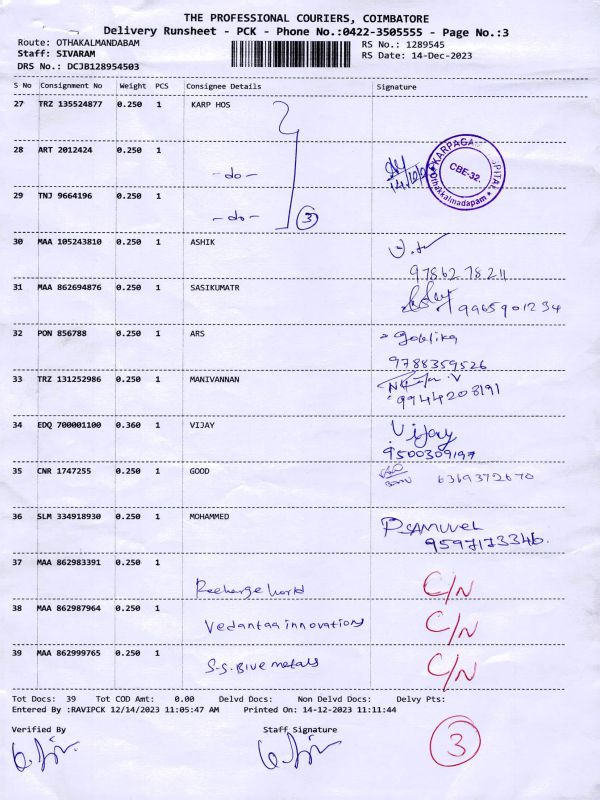 THE PROFESSIONAL COURIERS, COIMBATORE
Delivery Runsheet - PCK - Phone No.:0422-3505555 - Page No.:3
Route: OTHAKALMANDABAM RS No.: 1289545
Staff: SIVARAM RS Date: 14-Dec-2023
DRS No.: DCJB128954503
S No Consignment No Weight PCS Consignee Details Signature
27 TRZ 135524877 0.250 1 KARP HOS
28 ART 2012424 0.250 1
-do-
29 TNJ 9664196 0.250 1
-do- 3
CBE-32.
30 MAA 105243810 0.250 1 ASHIK
97862 78211
31 MAA 862694876 0.250 1 SASIKUMATR
9965901234
32 PON 856788 0.250 1 ARS
9788359526
33 TRZ 131252986 0.250 1 MANIVANNAN
9944208191
34 EDQ 700001100 0.360 1 VIJAY Vijay
9500309197
35 CNR 1747255 0.250 1 GOOD 6369372670
36 SLM 334918930 0.250 1 MOHAMMED P SAMUVEL
9597173346.
37 MAA 862983391 0.250 1
Recharge world C/N
38 MAA 862987964 0.250 1
Vedantaa innovations C/N
39 MAA 862999765 0.250 1
S.S. Blue metals C/N
Tot Docs: 39 Tot COD Amt: 0.00 Delvd Docs: Non Delvd Docs: Delvy Pts:
Entered By :RAVIPCK 12/14/2023 11:05:47 AM Printed On: 14-12-2023 11:11:44
Verified By Staff Signature
3